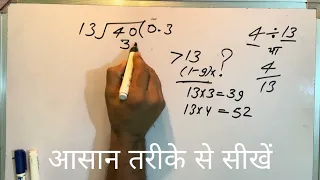 13)40(0.3
3
>13
(1-9)x ?
13x3=39
13x4=52
4÷13
या
4
13
आसान तरीके से सीखें